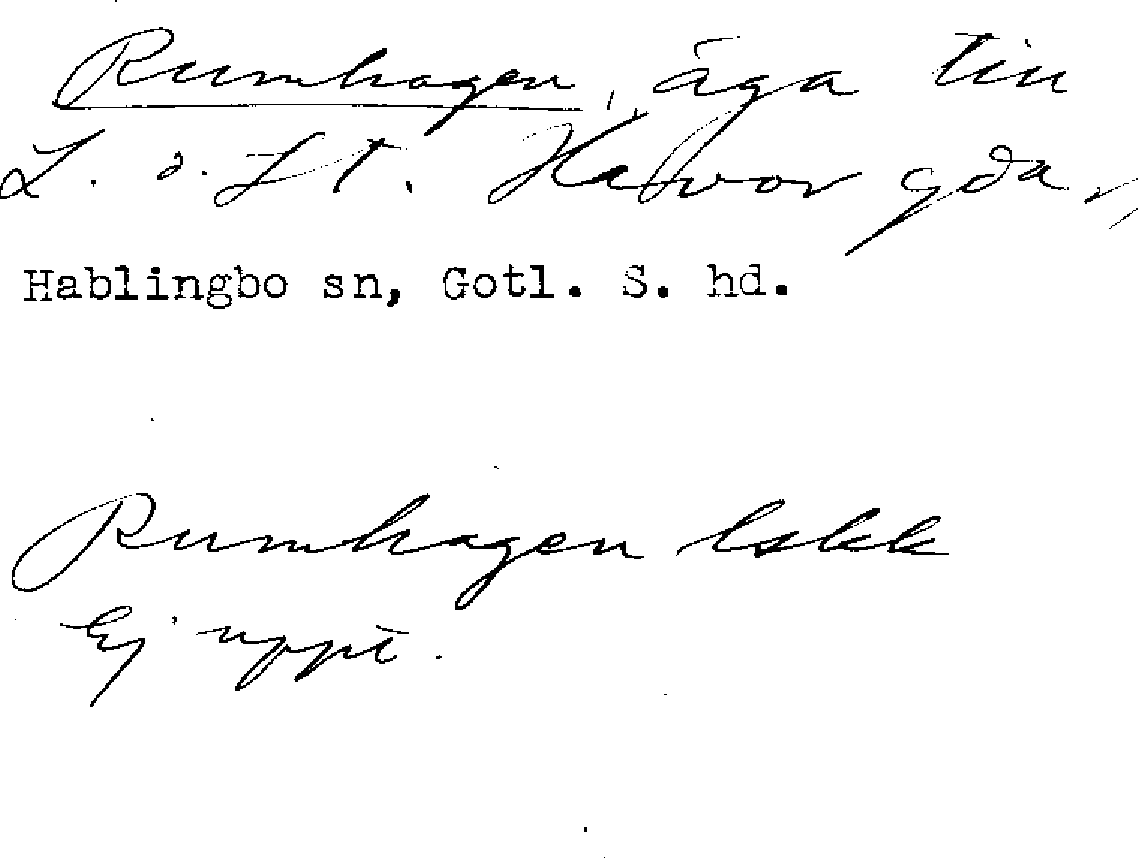 Rumhagen, äga till
L. o. St. Havor gda,
Hablingbo sn, Gotl. S. hd.
Rumhagen lskk
Ej uppt.